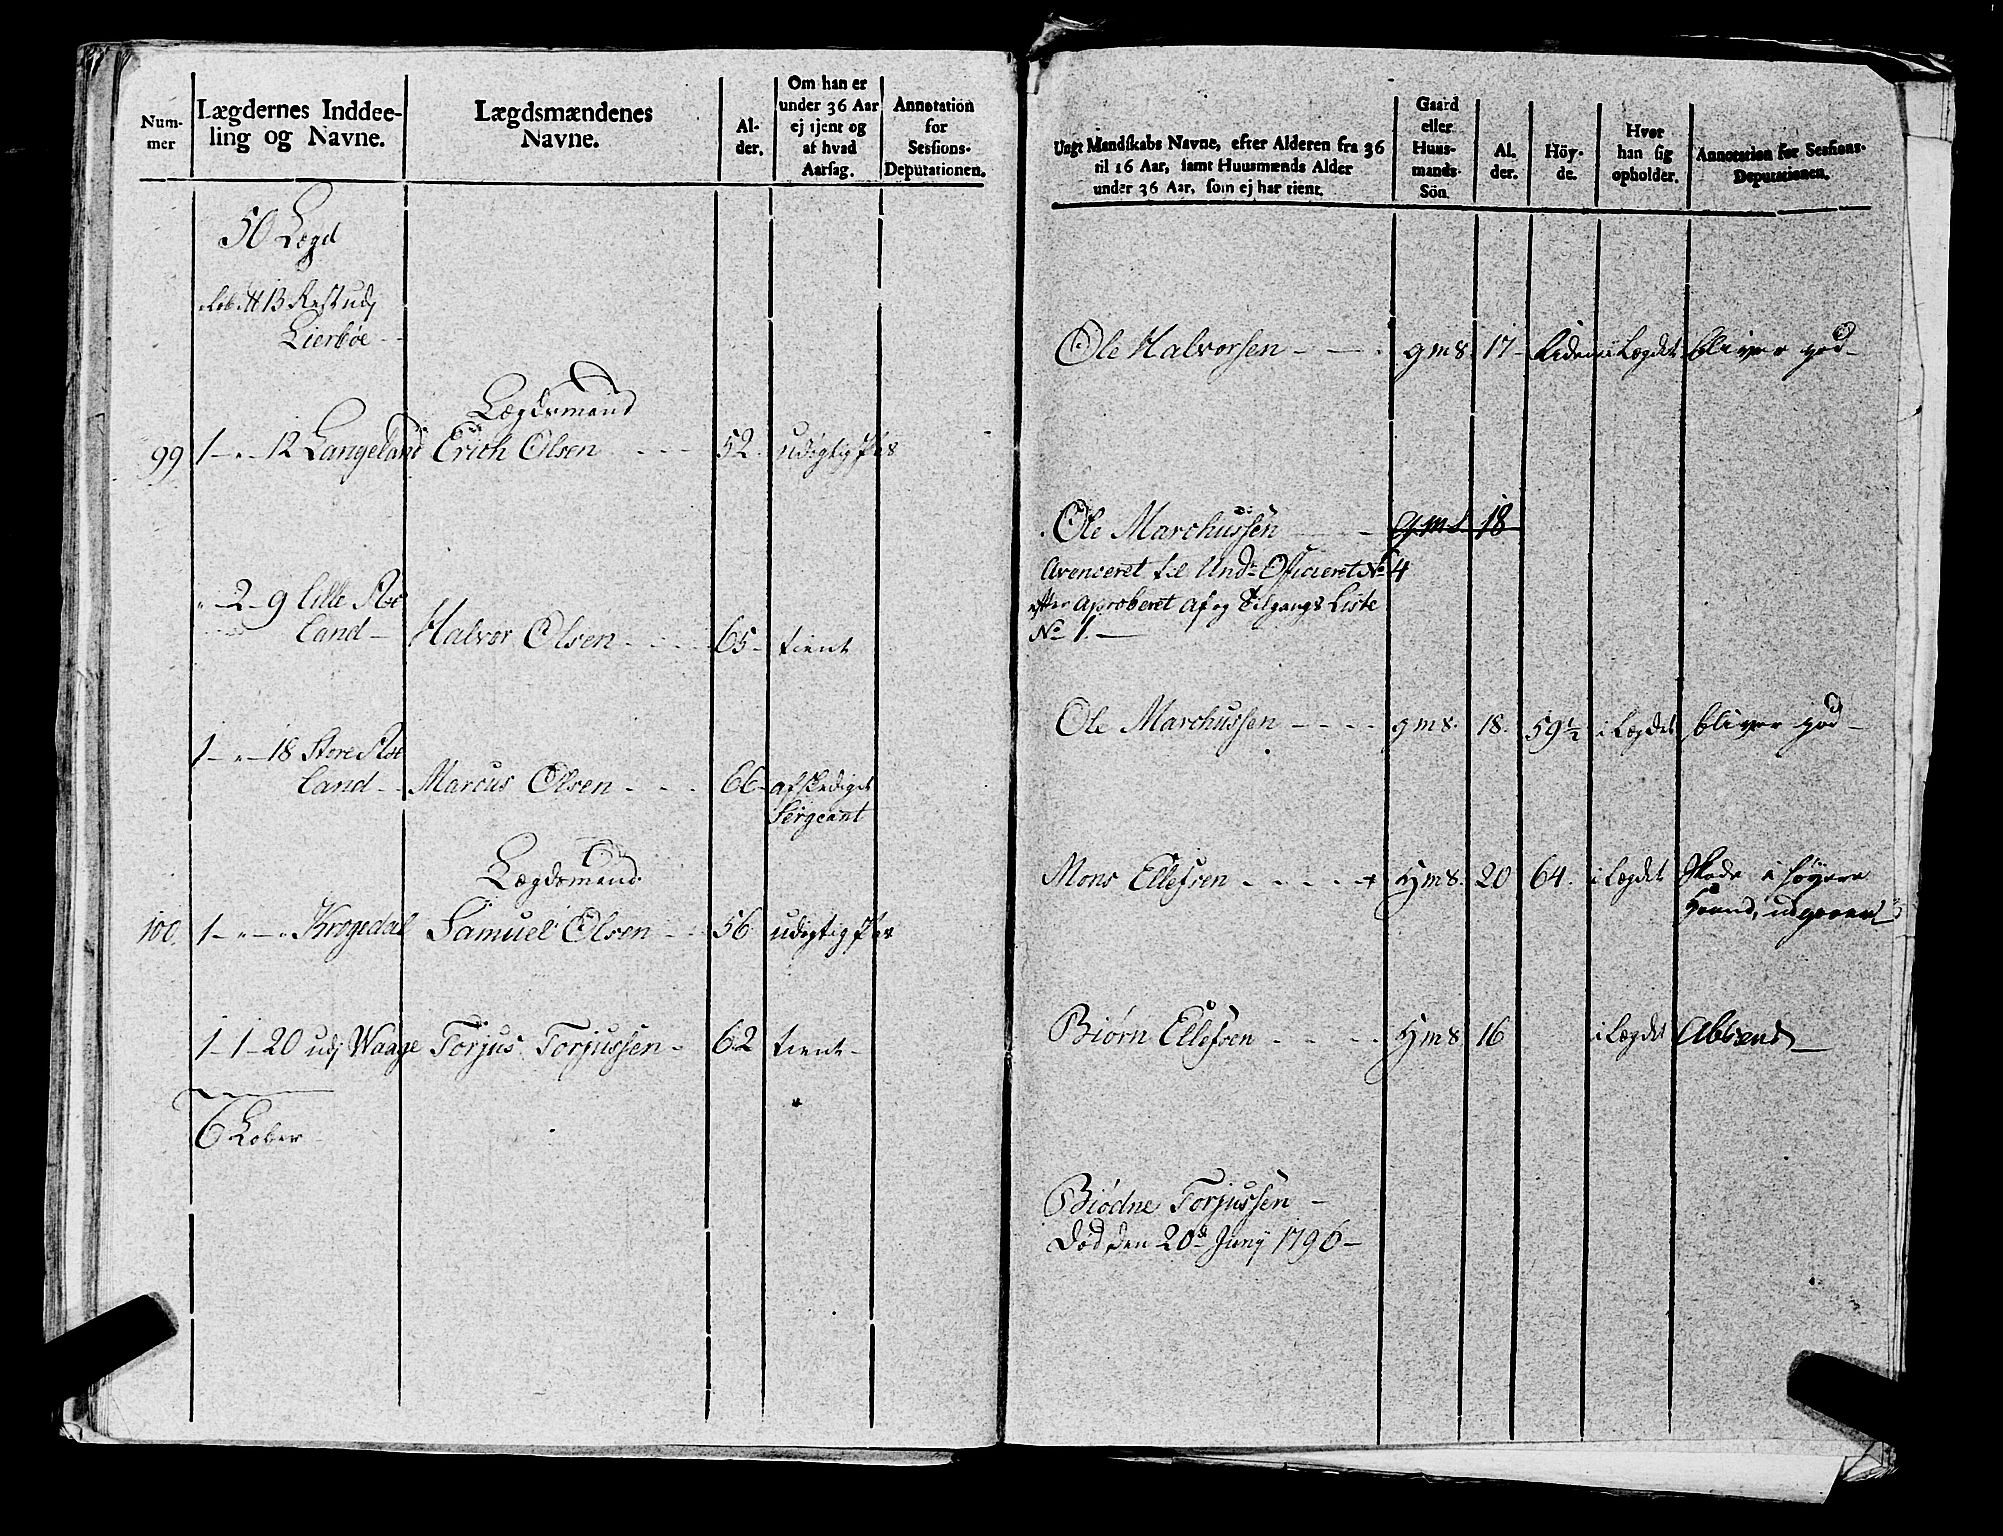 Num-
mer
Lægdernes Inddee-
ling og Navne.
Lægdsmændenes
Navne.
Al-
der.
Om han er
under 36 Aar
ej tjent og
af hvad
Aarsag.
Annotation
for
Sessions-
Deputationen.
50 Lægd
Lob ## 13 Rest udj
Lierbøe - -
Lægdsmand
99 1 - " - 12 Langeland Erich Olsen - - - 52. udögtig Pas
" - 2 - 9 Lille Røe
land - Halvor Olsen - - - - 65 - tient
1 - " - 18 Store Røe
land - - Marcus Olsen - - - 66 - afskediget
Sergeant
Lægdsmand
100. 1 - " - " Krogedal Samuel Olsen - - 56 udögtig Pas
1 - 1 - 20 udj Waage Torjus Torjussen - 62 tient -
6 Lober
Ungt Mandskabs Navne, efter Alderen fra 36
til 16 Aar, samt Huusmænds Alder
under 36 Aar, som ej har tient.
Gaard
eller
Huus-
mands-
Sön.
Al.
der.
Höy-
de.
Hvor
han sig
opholder.
Annotation for Sessions-
Deputationen.
Ole Halvorsen - - - gms. 17 - Liden i Lægdet bliver god -
Ole Marchussen - - - gms 18
Avenceret til Undr Officieret No 4
efter aproberet af og tilgangs Liste
No 1. -
Ole Marchussen - - - - gms. 18. 59½ i Lægdet bliver god -
Mons Ellefsen - - - - + Hms. 20 64. i Lægdet Skade i höyere
Haand,
Biørn Ellefsen - - - - Hms 16 i Lægdet Absent -
Biödne Torjussen -
død den 20de Junij 1796 -